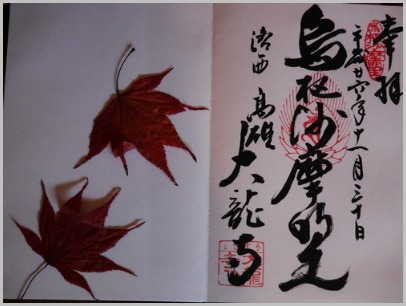 奉拝
平成廿六年十一月三十日
烏枢沙摩明王
洛西 高雄 大龍寺